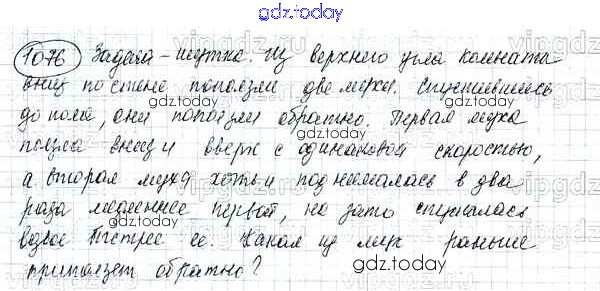 gdz.today
1076 Задача - шутка. Из верхнего угла комната
вниз по стене поползли две мухи. Спустившись
gdz.today
до пола, они поползли обратно. Первая муха
gdz.today
ползла вниз и вверх с одинаковой скоростью,
gdz.today
а вторая муха хоть и поднималась в два
раза медленнее первой, но зато спускалась
gdz.today
вдвое быстрее ее. Какая из мух раньше
приползет обратно?
gdz.today